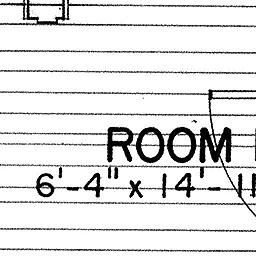 ROOM
6'-4" x 14'-11